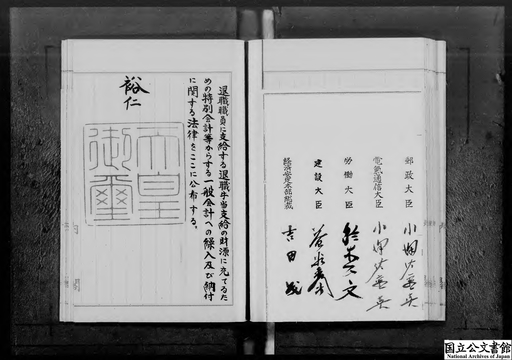 郵政大臣 小沢佐重喜
電気通信大臣 小沢佐重喜
労働大臣 鈴木正文
建設大臣 益谷秀次
経済安定本部総裁 吉田茂
退職職員に支給する退職手当支給の財源に充てるた
めの特別会計等からする一般会計への繰入及び納付
に関する法律をここに公布する。
裕仁
天皇
御璽
国立公文書館
National Archives of Japan